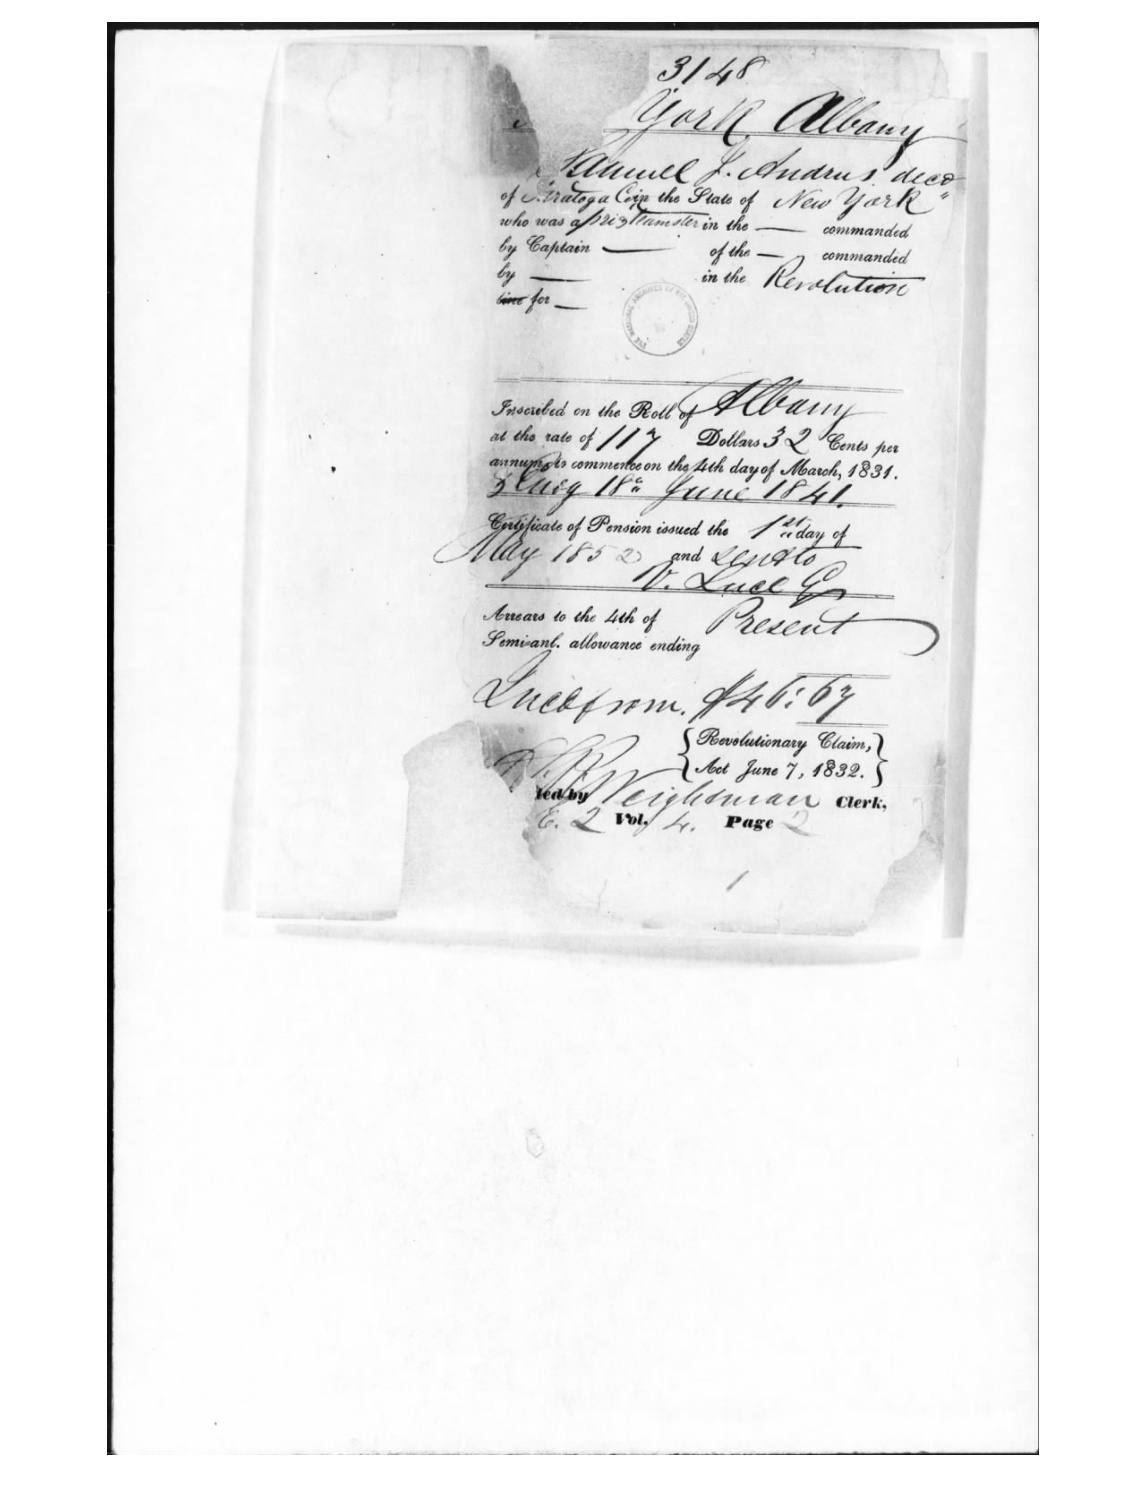 3148
York Albany
Samuel J. Andrus decd
of Saratoga Co in the State of New York
who was a & teamster in the — commanded
by Captain — of the — commanded
by — in the Revolution
for —
THE NATIONAL ARCHIVES OF THE UNITED STATES
Inscribed on the Roll of Albany
at the rate of 117 Dollars 32 Cents per
annum, to commence on the 4th day of March, 1831.
18 June 1841.
Certificate of Pension issued the 1st day of
May 1852 and sent to
V. Luce
Arrears to the 4th of Present
Semi-anl. allowance ending
$46:67
{Revolutionary Claim,}
{Act June 7, 1832.}
ded by Weightman Clerk,
E. 2 Vol. 4. Page 2
1